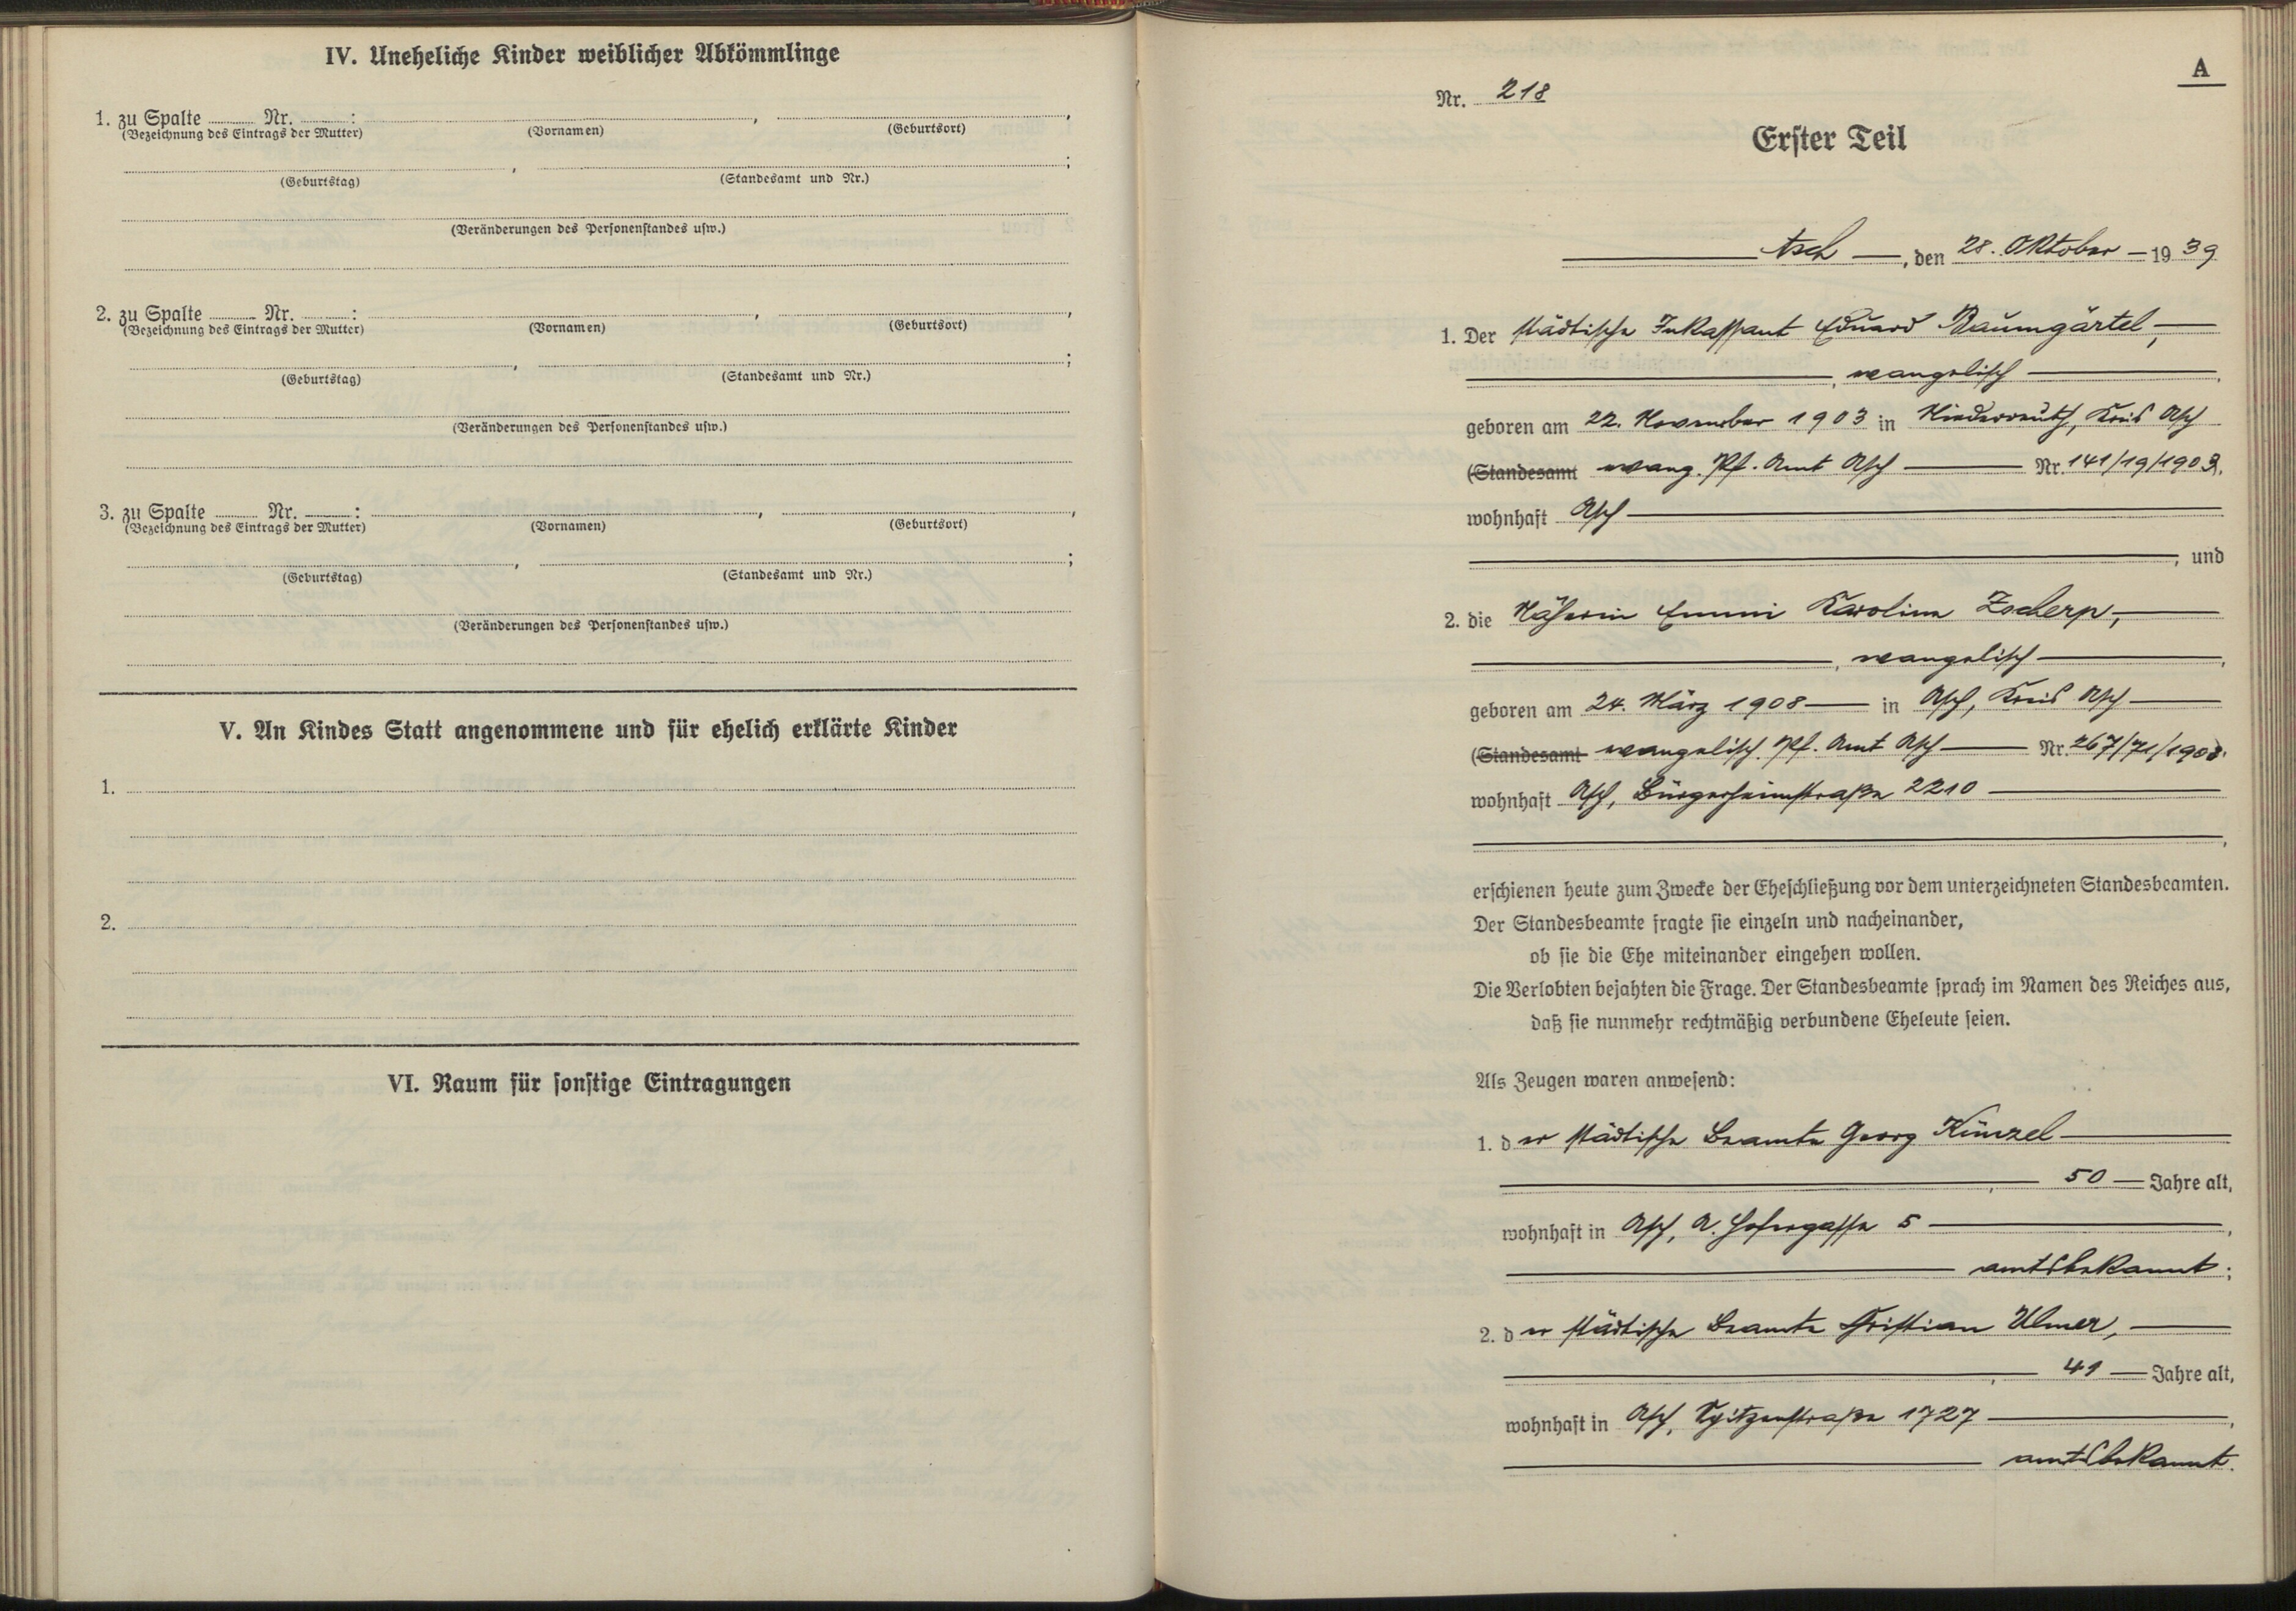 IV. Uneheliche Kinder weiblicher Abkömmlinge
1. zu Spalte Nr. : , ,
(Bezeichnung des Eintrags der Mutter) (Vornamen) (Geburtsort)
, ;
(Geburtstag) (Standesamt und Nr.)
(Veränderungen des Personenstandes usw.)
2. zu Spalte Nr. : , ,
(Bezeichnung des Eintrags der Mutter) (Vornamen) (Geburtsort)
, ;
(Geburtstag) (Standesamt und Nr.)
(Veränderungen des Personenstandes usw.)
3. zu Spalte Nr. : , ,
(Bezeichnung des Eintrags der Mutter) (Vornamen) (Geburtsort)
, ;
(Geburtstag) (Standesamt und Nr.)
(Veränderungen des Personenstandes usw.)
V. An Kindes Statt angenommene und für ehelich erklärte Kinder
1.
2.
VI. Raum für sonstige Eintragungen
A
Nr. 218
Erster Teil
Asch, den 28. Oktober 1939
1. Der städtische Inkassant Eduard Baumgärtel,
, evangelisch,
geboren am 22. November 1903 in Niederreuth, Kreis Asch
(Standesamt evang. Pf. Amt Asch Nr. 141/19/1903),
wohnhaft Asch
, und
2. die Näherin Emmi Karolina Zscherp,
, evangelisch,
geboren am 24. März 1908 in Asch, Kreis Asch
(Standesamt evangelisch. Pf. Amt Asch Nr. 267/71/1908)
wohnhaft Asch, Bürgerheimstraße 2210
,
erschienen heute zum Zwecke der Eheschließung vor dem unterzeichneten Standesbeamten.
Der Standesbeamte fragte sie einzeln und nacheinander,
ob sie die Ehe miteinander eingehen wollen.
Die Verlobten bejahten die Frage. Der Standesbeamte sprach im Namen des Reiches aus,
daß sie nunmehr rechtmäßig verbundene Eheleute seien.
Als Zeugen waren anwesend:
1. der städtische Beamte Georg Künzel
, 50 Jahre alt,
wohnhaft in Asch, A. Hofergasse 5,
amtsbekannt;
2. der städtische Beamte Christian Ulmer,
, 41 Jahre alt,
wohnhaft in Asch, Spitzenstraße 1727,
amtsbekannt.